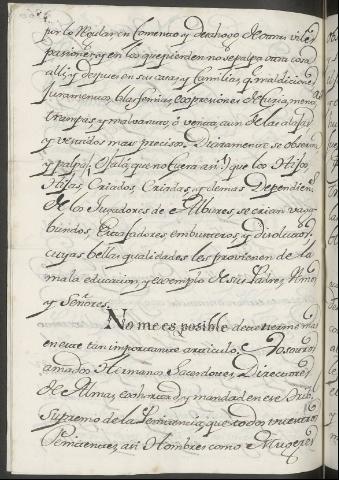 por lo Regular en Comercio y deahogo de otras viles
pasiones, y en los que pierden no se palpa otra cosa
alli, y despues en sus casas, y familias, qe maldiciones,
Juramentos, blasfemias, expresiones de furia, menos
trampas, y malvarato, ó venta, aun de las alajas
y vestidos mas precisos. Diariamente se observa
y palpa, (Ojalá, que no fuera asi!) que los Hijos,
Hijas, Criados, Criadas, y demas Dependientes
de los Jugadores de Albures, se crian vaga-
bundos, Estafadores, embusteros, y disolutos;
cuyas bellas qualidades les provienen de la
mala educacion, y exemplo de sus Padres, Amos
y Señores.
No me es posible detenerme mas
en este tan importante articulo. A vosotros
amados Hermanos Sacerdotes, Directores
de Almas, exhortad, y mandad en ese Tribl
Supremo de la Penitencia, que todos vuestros
Penitentes, asi Hombres como Mugeres